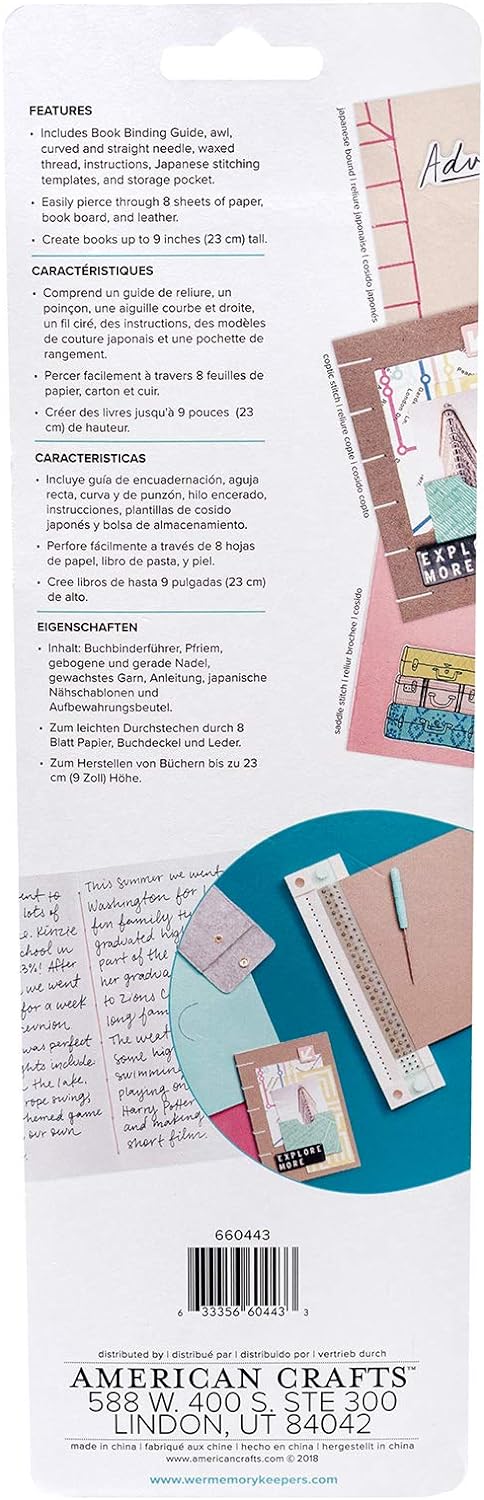 FEATURES
• Includes Book Binding Guide, awl,
curved and straight needle, waxed
thread, instructions, Japanese stitching
templates, and storage pocket.
• Easily pierce through 8 sheets of paper,
book board, and leather.
• Create books up to 9 inches (23 cm) tall.
CARACTÉRISTIQUES
• Comprend un guide de reliure, un
poinçon, une aiguille courbe et droite,
un fil ciré, des instructions, des modèles
de couture japonais et une pochette de
rangement.
• Percer facilement à travers 8 feuilles de
papier, carton et cuir.
• Créer des livres jusqu'à 9 pouces (23
cm) de hauteur.
CARACTERISTICAS
• Incluye guía de encuadernación, aguja
recta, curva y de punzón, hilo encerado,
instrucciones, plantillas de cosido
japonés y bolsa de almacenamiento.
• Perfore fácilmente a través de 8 hojas
de papel, libro de pasta, y piel.
• Cree libros de hasta 9 pulgadas (23 cm)
de alto.
EIGENSCHAFTEN
• Inhalt: Buchbinderführer, Pfriem,
gebogene und gerade Nadel,
gewachstes Garn, Anleitung, japanische
Nähschablonen und
Aufbewahrungsbeutel.
• Zum leichten Durchstechen durch 8
Blatt Papier, Buchdeckel und Leder.
• Zum Herstellen von Büchern bis zu 23
cm (9 Zoll) Höhe.
japanese bound | reliure japonaise | cosido japonés
Adv
coptic stitch | reliure copte | cosido copto
London
EXPLO
MORE
saddle stitch | reliur brochee | cosido
ent to
lots of
e. Kinzie
chool in
3%! After
we went
for a week
eunion.
was perfect
ghts include:
the lake,
rope swings,
themed game
our own
This summer we went
Washington for
fun family
graduated
part of the
her gradua
to Zions
long fam
The weat
some hig
swimmin
playing on
Harry Potter
and making
short film.
EXPLORE
MORE
660443
6 33356 60443 3
distributed by | distribué par | distribuido por | vertrieb durch
AMERICAN CRAFTS™
588 W. 400 S. STE 300
LINDON, UT 84042
made in china | fabriqué aux chine | hecho en china | hergestellt in china
www.americancrafts.com © 2018
www.wermemorykeepers.com